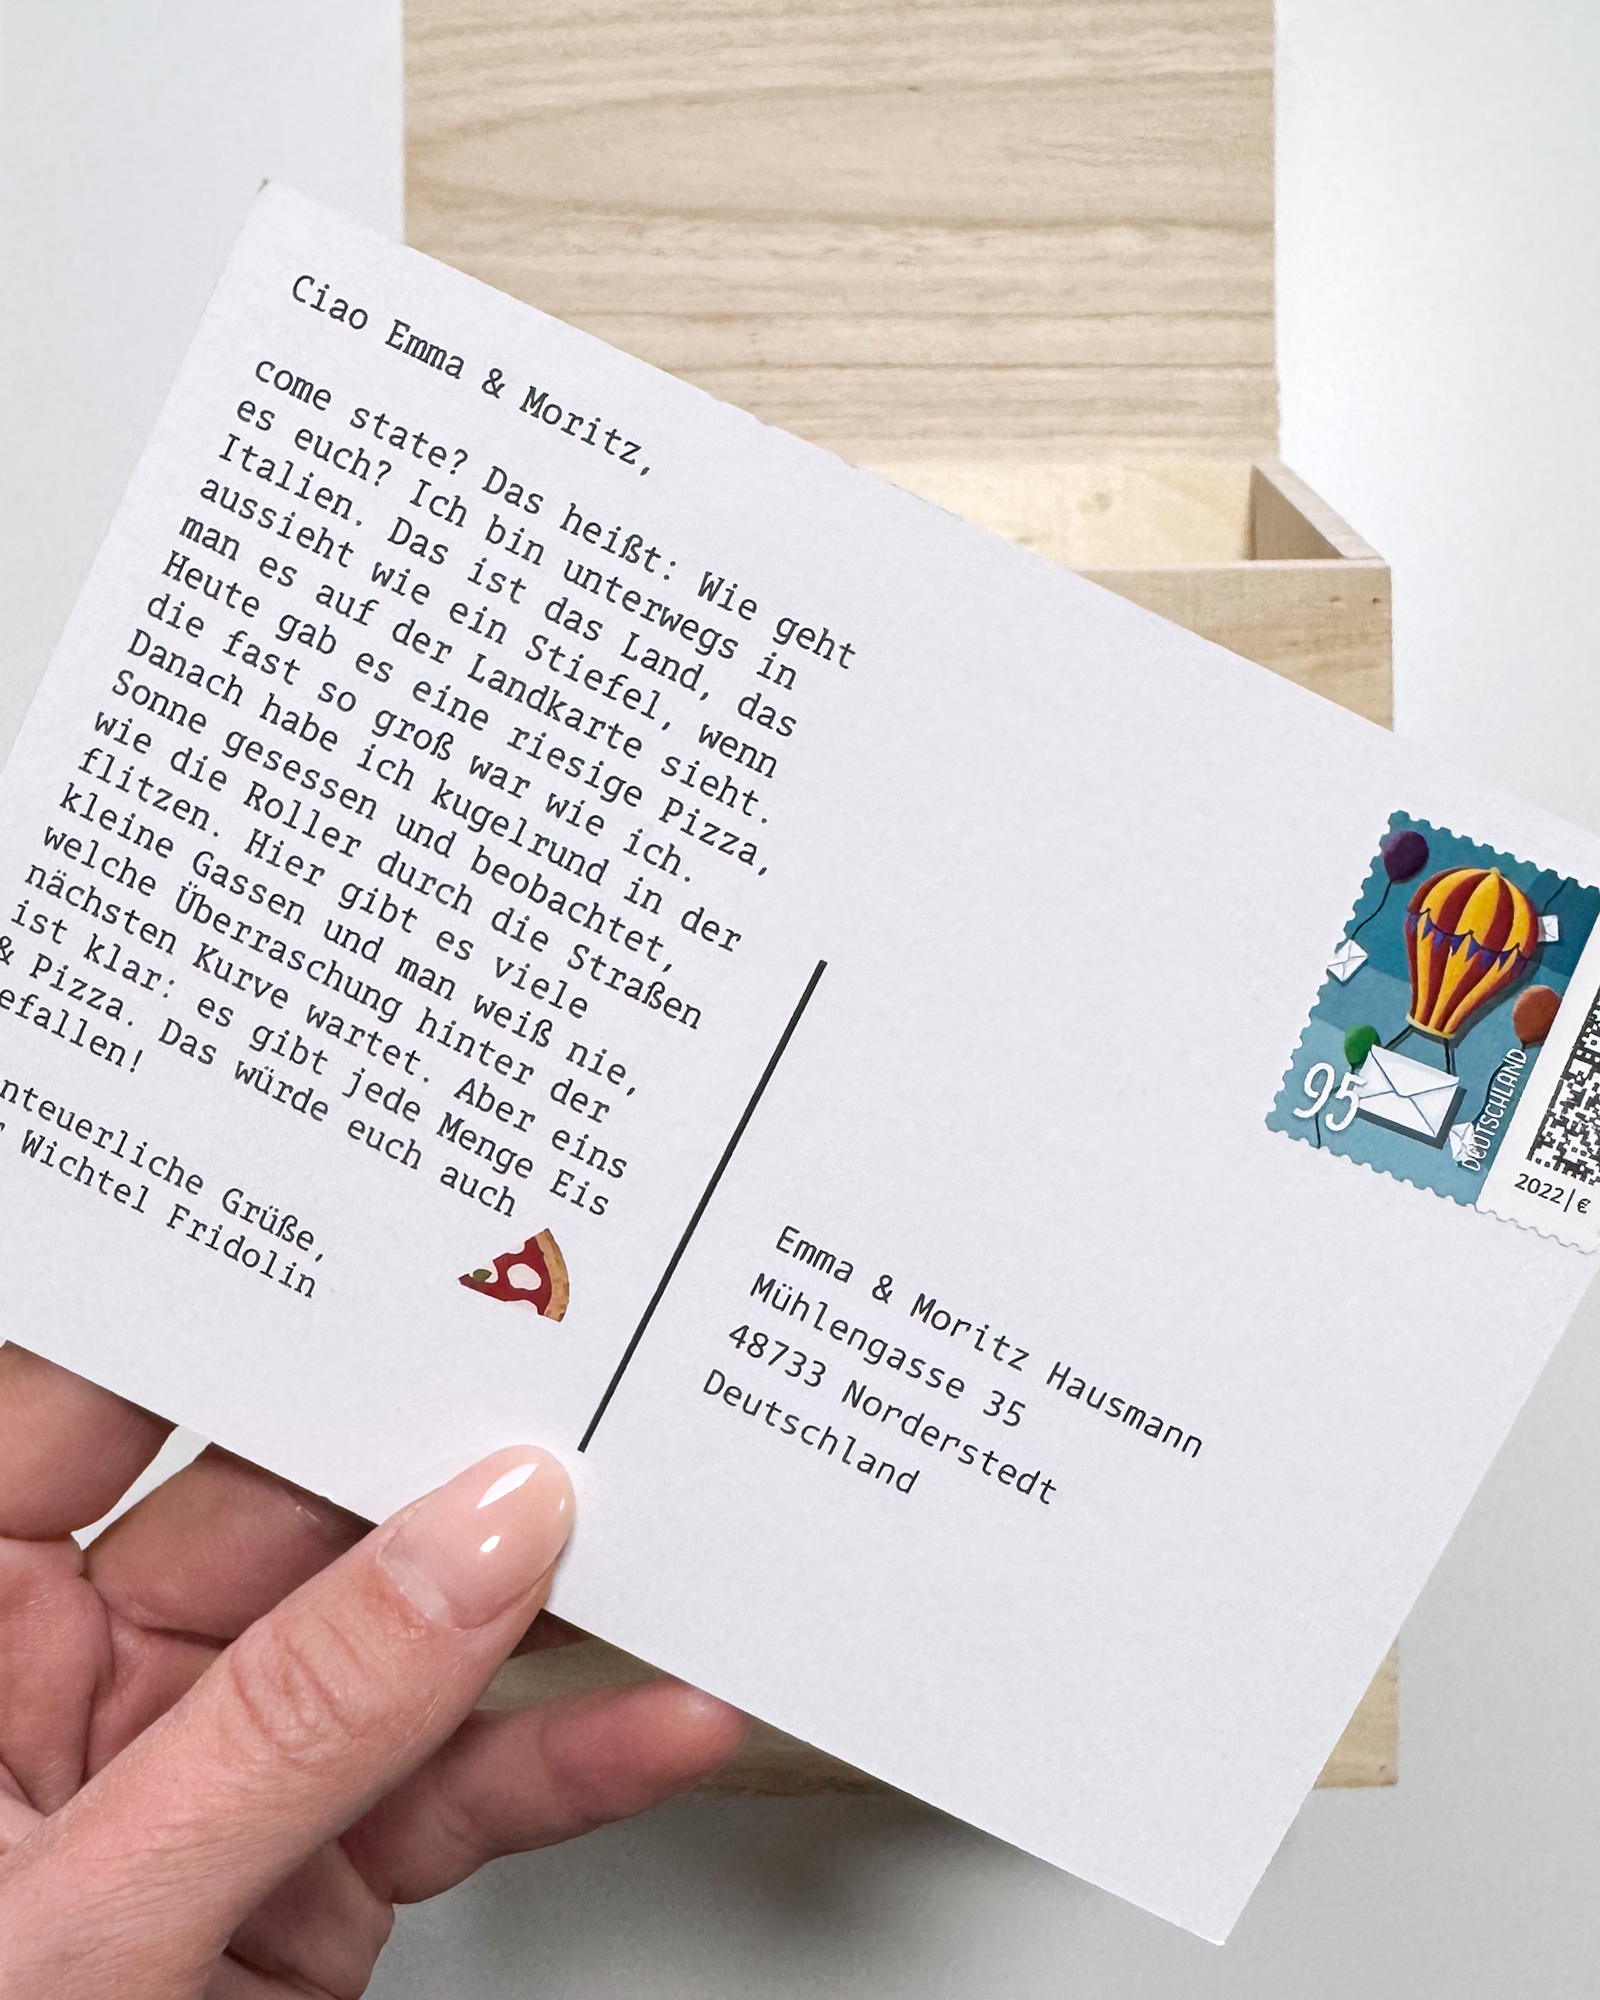 Ciao Emma & Moritz,
come state? Das heißt: Wie geht
es euch? Ich bin unterwegs in
Italien. Das ist das Land, das
aussieht wie ein Stiefel, wenn
man es auf der Landkarte sieht.
Heute gab es eine riesige Pizza,
die fast so groß war wie ich.
Danach habe ich kugelrund in der
Sonne gesessen und beobachtet,
wie die Roller durch die Straßen
flitzen. Hier gibt es viele
kleine Gassen und man weiß nie,
welche Überraschung hinter der
nächsten Kurve wartet. Aber eins
ist klar: es gibt jede Menge Eis
& Pizza. Das würde euch auch
efallen!
nteuerliche Grüße,
r Wichtel Fridolin
95
DEUTSCHLAND
2022|€
Emma & Moritz Hausmann
Mühlengasse 35
48733 Norderstedt
Deutschland